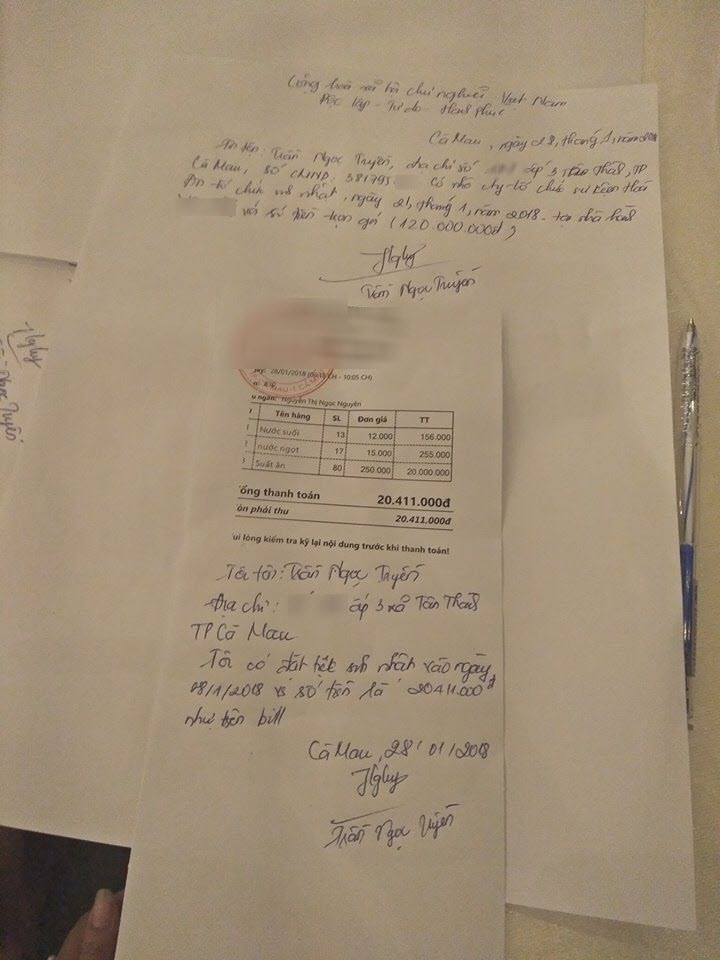 Cộng hoà xã hội chủ nghĩa Việt Nam
Độc lập - Tự do - Hạnh phúc
Cà Mau, ngày 28, tháng 1, năm 2018
tên: Trần Ngọc Truyền, địa chỉ số ấp 3 Tân Thành, TP
Cà Mau, số CMND: 381795 có nhờ cty tổ chức sự kiện Hoá
tổ chức sinh nhật, ngày 21, tháng 1, năm 2018. tại nhà hàng
với số tiền trọn gói (120.000.000đ)
Trần Ngọc Truyền
28/01/2018 - 10:05 CH)
u ngân: Nguyễn Thị Ngọc Nguyên
Tên hàng SL Đơn giá TT
Nước suối 13 12.000 156.000
nước ngọt 17 15.000 255.000
Suất ăn 80 250.000 20.000.000
ổng thanh toán 20.411.000đ
òn phải thu 20.411.000đ
ui lòng kiểm tra kỹ lại nội dung trước khi thanh toán!
Tôi tên: Trần Ngọc Truyền
Địa chỉ: ấp 3 xã Tân Thành
TP Cà Mau
Tôi có đặt tiệc sinh nhật vào ngày
28/1/2018 số tiền là 20411.000đ
như trên bill
Cà Mau, 28/01/2018
Trần Ngọc Truyền